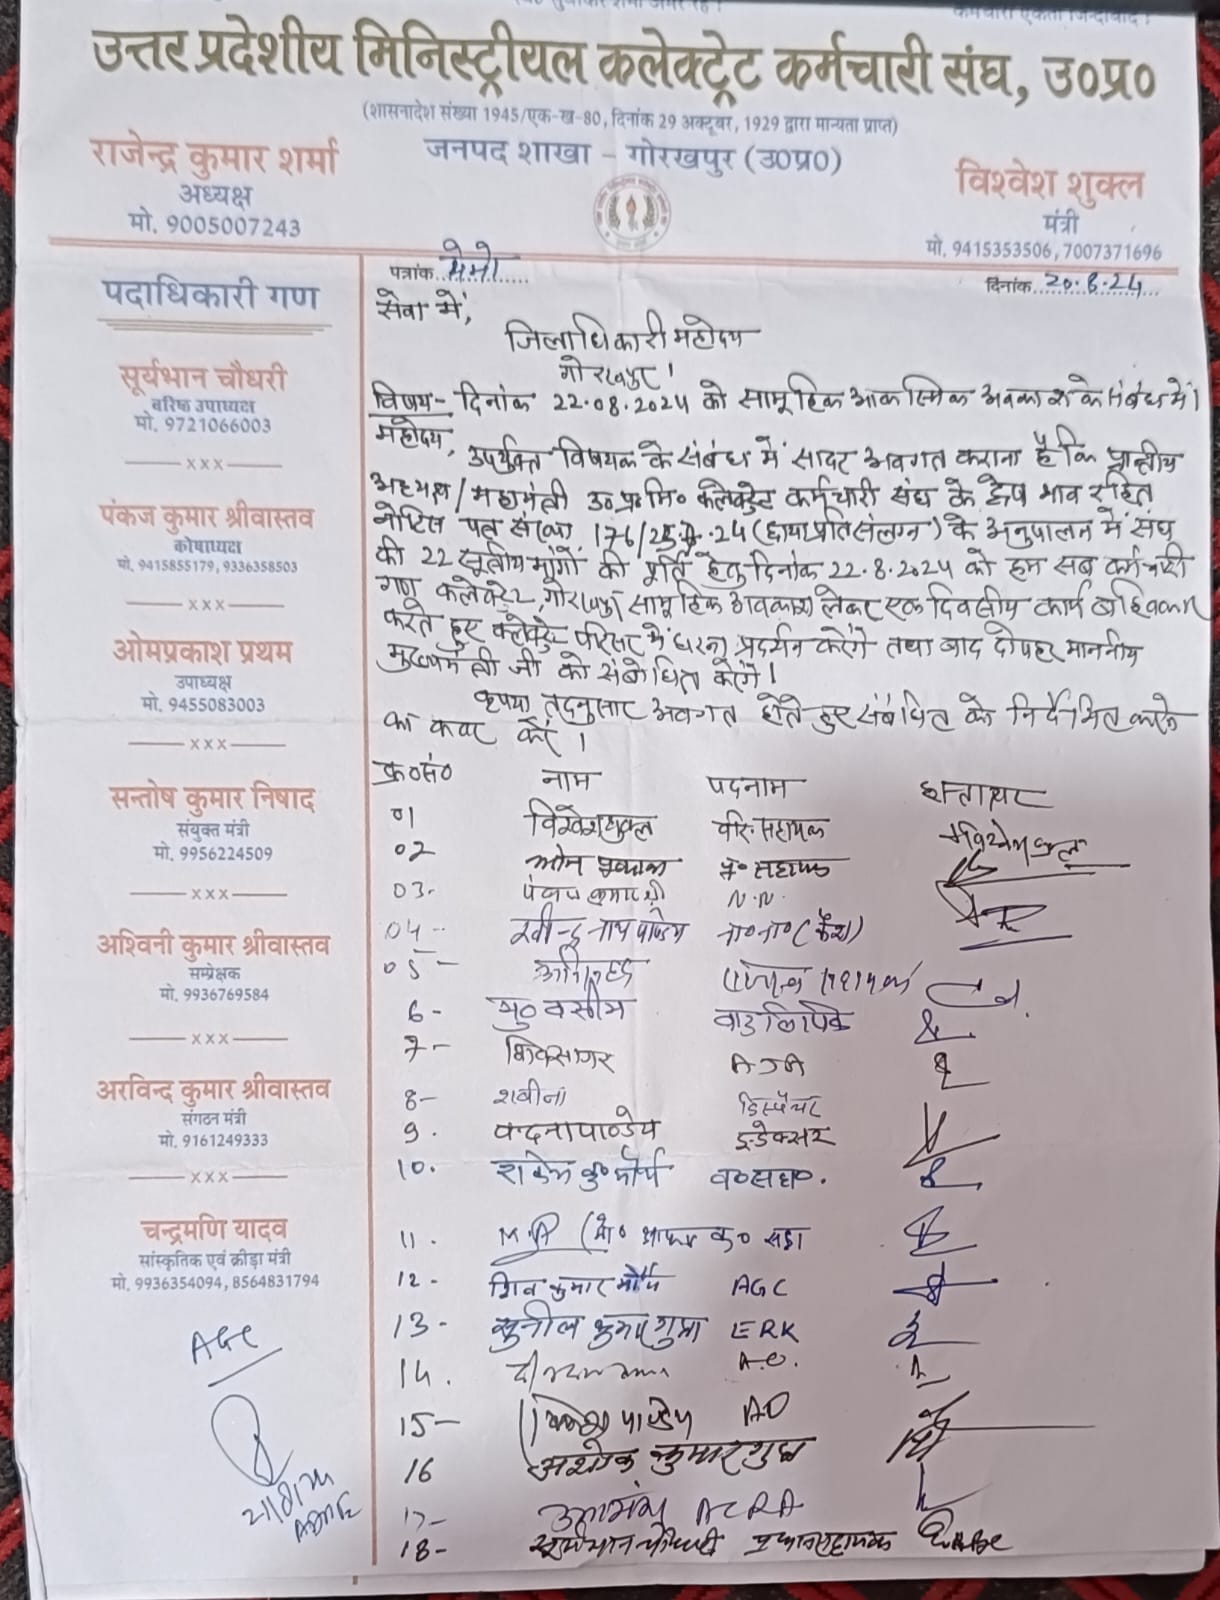 कर्मचारी एकता जिन्दाबाद !
उत्तर प्रदेशीय मिनिस्ट्रीयल कलेक्ट्रेट कर्मचारी संघ, उ०प्र०
(शासनादेश संख्या 1945/एक-ख-80, दिनांक 29 अक्टूबर, 1929 द्वारा मान्यता प्राप्त)
जनपद शाखा – गोरखपुर (उ०प्र०)
राजेन्द्र कुमार शर्मा
अध्यक्ष
मो. 9005007243
विश्वेश शुक्ल
मंत्री
मो. 9415353506, 7007371696
पदाधिकारी गण
सूर्यभान चौधरी
वरिष्ठ उपाध्यक्ष
मो. 9721066003
xxx
पंकज कुमार श्रीवास्तव
कोषाध्यक्ष
मो. 9415855179, 9336358503
xxx
ओमप्रकाश प्रथम
उपाध्यक्ष
मो. 9455083003
xxx
सन्तोष कुमार निषाद
संयुक्त मंत्री
मो. 9956224509
xxx
अश्विनी कुमार श्रीवास्तव
सम्प्रेक्षक
मो. 9936769584
xxx
अरविन्द कुमार श्रीवास्तव
संगठन मंत्री
मो. 9161249333
xxx
चन्द्रमणि यादव
सांस्कृतिक एवं क्रीड़ा मंत्री
मो. 9936354094, 8564831794
AGC
पत्रांक मेमो
दिनांक 20.8.24
सेवा में,
जिलाधिकारी महोदय
गोरखपुर।
विषय- दिनांक 22.08.2024 को सामूहिक आकस्मिक अवकाश के संबंध में।
महोदय,
उपर्युक्त विषयक के संबंध में सादर अवगत कराना है कि प्रान्तीय
अध्यक्ष/महामंत्री उ.प्र.मि० कलेक्ट्रेट कर्मचारी संघ के द्वेष भाव रहित
नोटिस पत्र संख्या 176/ .24 (छायाप्रति संलग्न) के अनुपालन में संघ
की 22 सूत्रीय मांगों की पूर्ति हेतु दिनांक 22.8.2024 को हम सब कर्मचारी
गण कलेक्ट्रेट, गोरखपुर सामूहिक अवकाश लेकर एक दिवसीय कार्य बहिष्कार
करते हुए कलेक्ट्रेट परिसर में धरना प्रदर्शन करेंगे तथा बाद दोपहर माननीय
मुख्यमंत्री जी को संबोधित करेंगे।
कृपया तद्नुसार अवगत होते हुए संबंधित को निर्देशित करने
का कष्ट करें।
क्र०सं० नाम पदनाम हस्ताक्षर
01 विश्वेश शुक्ल वरि. सहायक
02 ओम प्रकाश प्र० सहायक
03- पंकज कुमार श्री N.N.
04-- रवीन्द्र नाथ पाण्डेय ना०ना० (कैश)
05-
6- मु० वसीम वाद लिपिक
7- शिवसागर AJA
8- शबीना डिस्पैचर
9. वन्दना पाण्डेय इन्डेक्सर
10. राकेश कु० मौर्य व०सहा०.
11.
12- शिव कुमार मौर्य AGC
13- सुनील कुमार गुप्ता ERK
14.
15- पाण्डेय AO
16 अशोक कुमार गुप्त
17- ACRA
18- सूर्यभान चौधरी प्रधान सहायक